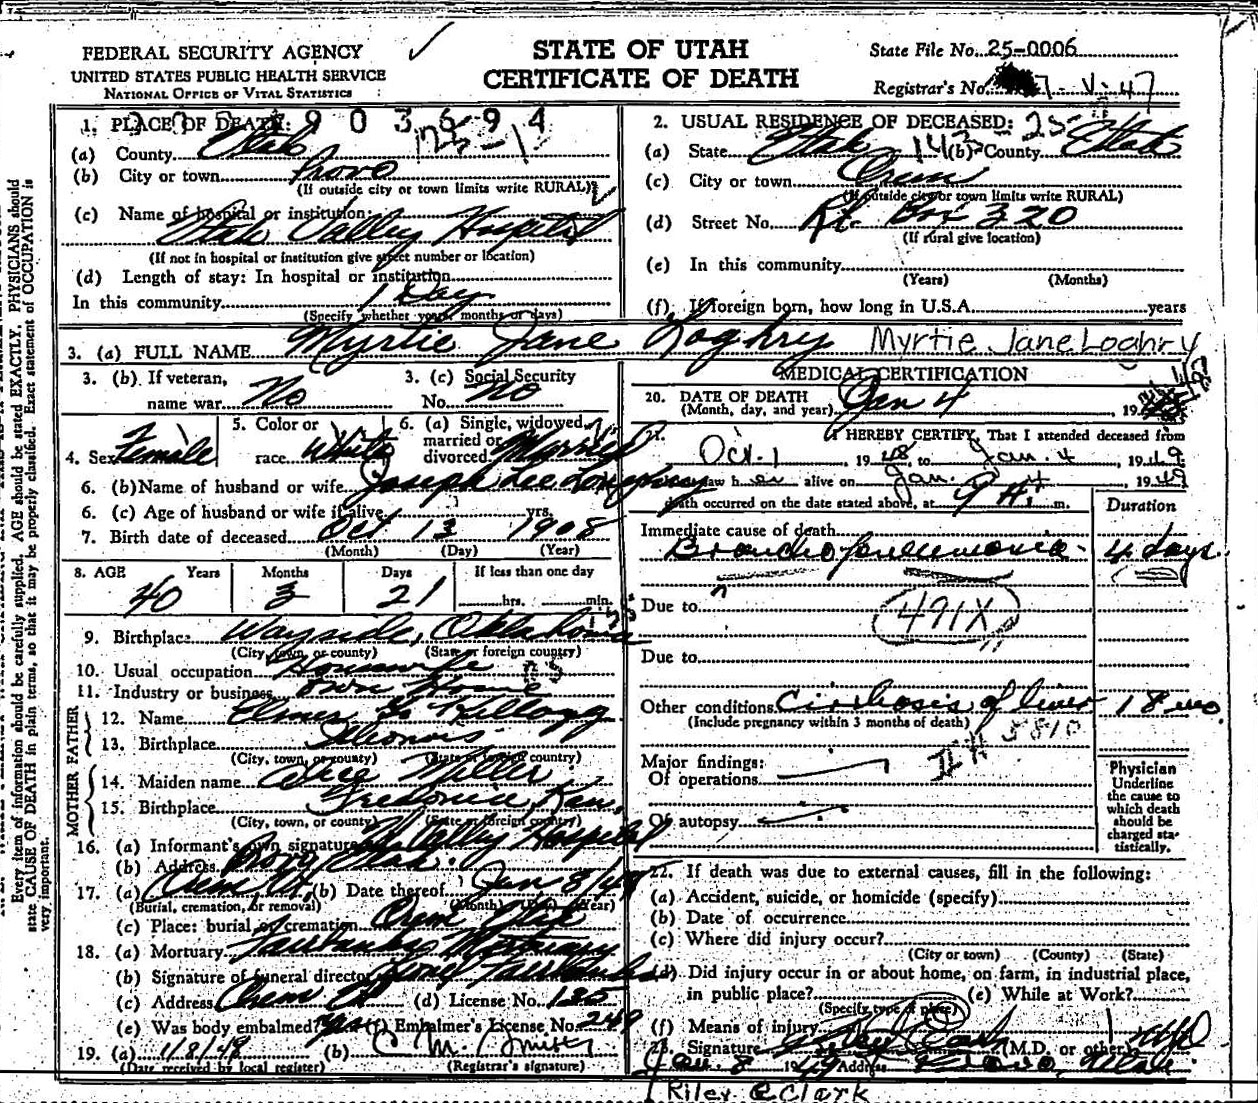 FEDERAL SECURITY AGENCY
UNITED STATES PUBLIC HEALTH SERVICE
NATIONAL OFFICE OF VITAL STATISTICS
STATE OF UTAH
CERTIFICATE OF DEATH
State File No. 25-0006
Registrar's No. 47
1. PLACE OF DEATH: 903694
(a) County Utah
(b) City or town Provo
(If outside city or town limits write RURAL)
(c) Name of hospital or institution:
Utah Valley Hospital
(If not in hospital or institution give street number or location)
(d) Length of stay: In hospital or institution
In this community 1 Day
(Specify whether years, months or days)
2. USUAL RESIDENCE OF DECEASED: 25-
(a) State Utah 143 (b) County Utah
(c) City or town Orem
(If outside city or town limits write RURAL)
(d) Street No. Rt. Box 320
(If rural give location)
(e) In this community
(Years) (Months)
(f) If foreign born, how long in U.S.A. years
3. (a) FULL NAME Myrtie Jane Loghry Myrtie Jane Loghry
3. (b) If veteran,
name war No
3. (c) Social Security
No. No
4. Sex Female
5. Color or
race White
6. (a) Single, widowed,
married or
divorced Married
6. (b) Name of husband or wife Joseph Lee
6. (c) Age of husband or wife if alive yrs.
7. Birth date of deceased Oct 13 1908
(Month) (Day) (Year)
8. AGE Years Months Days If less than one day
40 3 21 hrs. min.
9. Birthplace Wayside, Oklahoma
(City, town, or county) (State or foreign country)
10. Usual occupation Housewife
11. Industry or business own Home
FATHER
12. Name Elmer Kellogg
13. Birthplace Illionois
(City, town, or county) (State or foreign country)
MOTHER
14. Maiden name Alice Miller
15. Birthplace Fredonia Kan.
(City, town, or county) (State or foreign country)
16. (a) Informant's own signature U Valley Hospital
(b) Address Provo Utah.
17. (a) Orem Ut. (b) Date thereof Jan 8/49
(Burial, cremation, or removal) (Month) (Day) (Year)
(c) Place: burial or cremation Orem Utah
18. (a) Mortuary Fairbanks Mortuary
(b) Signature of funeral director Fairbanks
(c) Address Orem Ut (d) License No. 135
(e) Was body embalmed? Yes (f) Embalmer's License No. 249
19. (a) 1/8/49 (b) C M. Smith
(Date received by local register) (Registrar's signature)
MEDICAL CERTIFICATION
20. DATE OF DEATH
(Month, day, and year) Jan 4, 19
21. I HEREBY CERTIFY, That I attended deceased from
Oct. 1 1948, to Jan. 4, 1949
saw her alive on Jan. 1949
death occurred on the date stated above, at 9 m.
Duration
Immediate cause of death
Bronchopneumonia - 4 days.
Due to
491X
Due to
Other conditions Cirrhosis of liver 18 mo
(Include pregnancy within 3 months of death)
5810
Major findings:
Of operations
Of autopsy
Physician
Underline
the cause to
which death
should be
charged sta-
tistically.
22. If death was due to external causes, fill in the following:
(a) Accident, suicide, or homicide (specify)
(b) Date of occurrence
(c) Where did injury occur?
(City or town) (County) (State)
(d) Did injury occur in or about home, on farm, in industrial place,
in public place? (e) While at Work?
(Specify type of place)
(f) Means of injury
23. Signature Riley Clark (M.D. or other)
Jan. 8 1949 Address Provo, Utah
Riley C Clark
Every item of information should be carefully supplied. AGE should be stated EXACTLY. PHYSICIANS should
state CAUSE OF DEATH in plain terms, so that it may be properly classified. Exact statement of OCCUPATION is
very important.